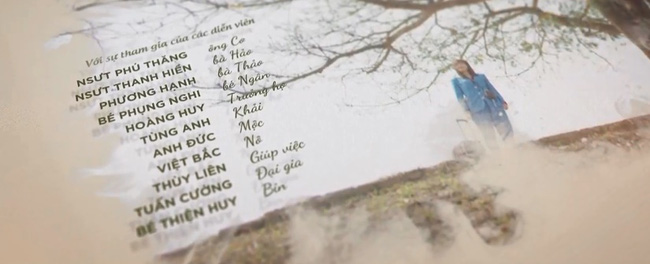 Với sự tham gia của các diễn viên
NSƯT PHÚ THĂNG ông Cơ
NSƯT THANH HIỀN bà Hảo
PHƯƠNG HẠNH bà Thảo
BÉ PHỤNG NGHI bé Ngân
HOÀNG HUY Trưởng họ
TÙNG ANH Khải
ANH ĐỨC Mộc
VIỆT BẮC Nô
THÙY LIÊN Giúp việc
TUẤN CƯỜNG Đại gia
BÉ THIÊN HUY Bin